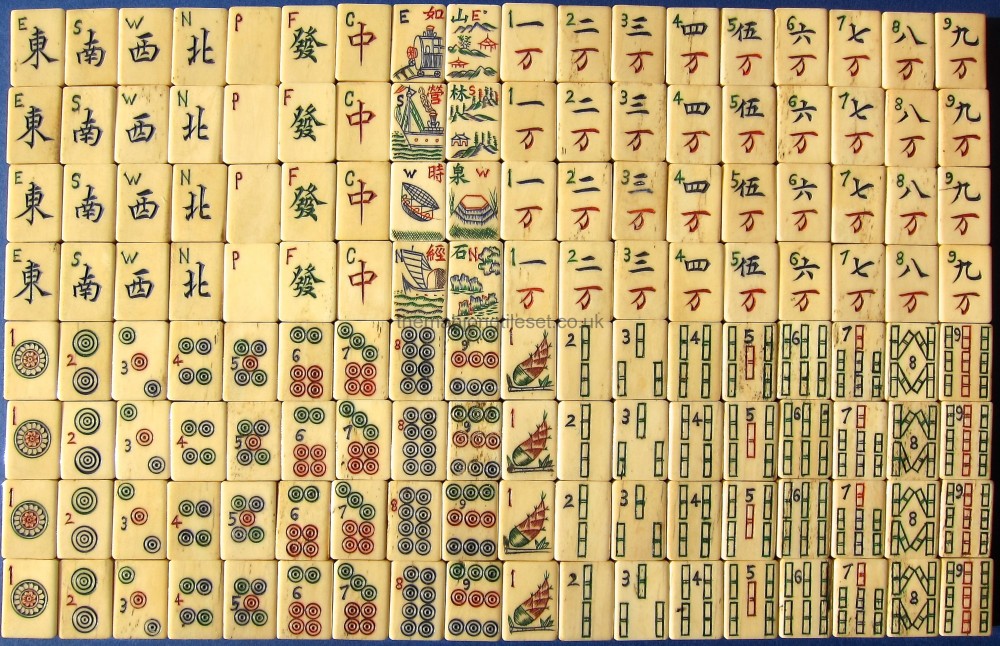 E 東 S 南 W 西 N 北 P F 發 C 中 E 如 山 E 1 一万 2 二万 3 三万 4 四万 5 伍万 6 六万 7 七万 8 八万 9 九万
E 東 S 南 W 西 N 北 P F 發 C 中 S 營 林 S 1 一万 2 二万 3 三万 4 四万 5 伍万 6 六万 7 七万 8 八万 9 九万
E 東 S 南 W 西 N 北 P F 發 C 中 W 時 泉 W 1 一万 2 二万 3 三万 4 四万 5 伍万 6 六万 7 七万 8 八万 9 九万
E 東 S 南 W 西 N 北 P F 發 C 中 N 經 石 N 1 一万 2 二万 3 三万 4 四万 5 伍万 6 六万 7 七万 8 八万 9 九万
themahjongtileset.co.uk
1 2 3 4 5 6 7 8 9 1 2 3 4 5 6 7 8 9
1 2 3 4 5 6 7 8 9 1 2 3 4 5 6 7 8 9
1 2 3 4 5 6 7 8 9 1 2 3 4 5 6 7 8 9
1 2 3 4 5 6 7 8 9 1 2 3 4 5 6 7 8 9